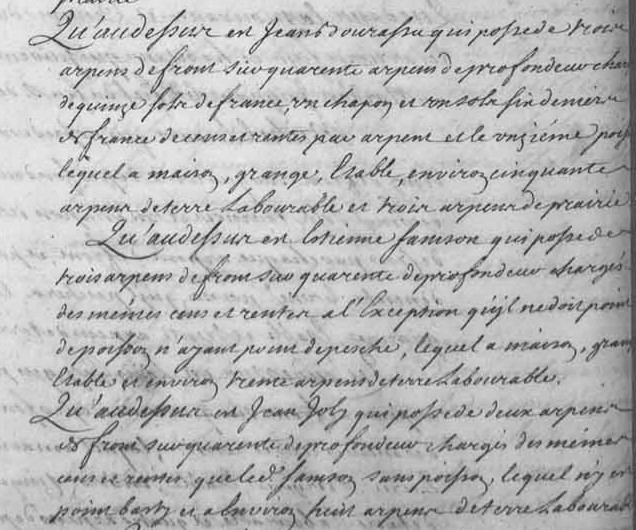 Qu'audessus est Jean Dourassa qui possede trois
arpens de front sur quarente arpens de profondeur char
de quinze sols de france, un chapon et un sols six deniers
de france de cens et rentes par arpent et le unziéme pois
lequel a maison, grange, Etable, environ cinquante
arpens de terre Labourable et trois arpens de prairie
Qu'audessus est Estienne Samson qui possede
trois arpens de front sur quarente de profondeur chargés
des mêmes cens et rentes a l'Exception qu'il ne doit point
de poisson n'ayant point de pesche, lequel a maison, gran
Etable et environ trente arpens de terre Labourable.
Qu'audessus est Jean Joly qui possede deux arpens
de front sur quarente de profondeur chargés des mêmes
cens et rentes que led. Samson sans poisson, lequel n'y a
point basty et a Environ huit arpens de terre Labourab